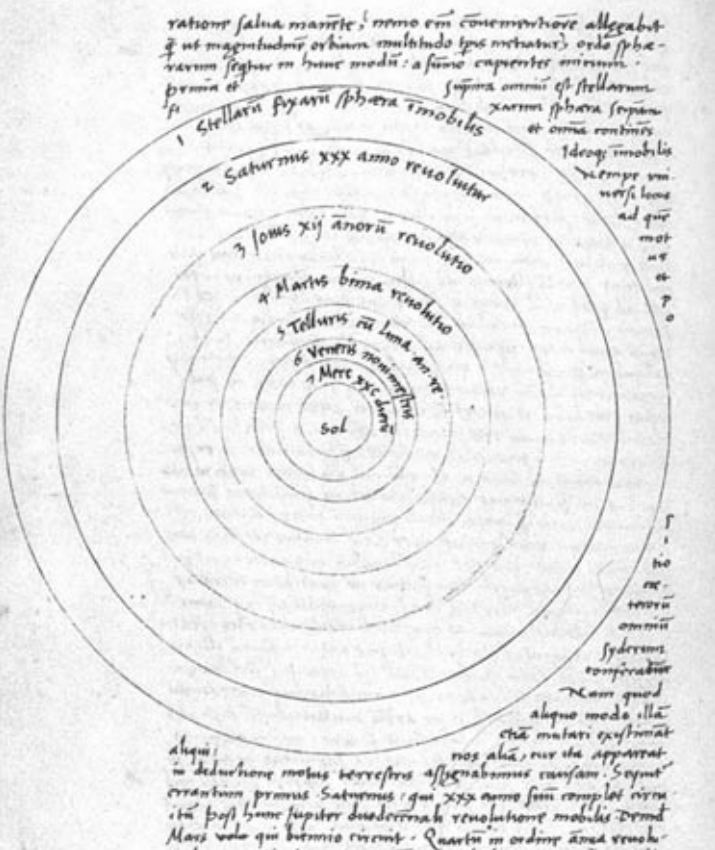 ratione salva manēte, nemo em̄ cōvenientiorē allegabit
q̄ ut magnitudinē orbium multitudo tp̄is metiatur, ordo sphæ-
rarum seqtur in hunc modū: a sūmo capientes initium.
prima et suprema omniū est stellarum
fi xarum sphæra seipsam
et omnia continēs
Ideoq; īmobilis
nempe uni
versi locus
ad quē
mot
us
et
p
o
1 Stellarū fixarū sphæra īmobilis
2 Saturnus xxx anno revoluitur
3 Jovis xij ānorū revolutio
4 Martis bima revolutio
5 Telluris cū luna an. re.
6 Veneris nonimestris
7 Merc xxc dierū
Sol
s
i
tio
cæ-
terorū
omniū
syderum
conferatur
Nam quod
aliquo modo illā
etiā mutari existimāt
aliqui: nos aliā, cur ita appareat
in deductione motus terrestris assignabimus causam. Sequit
errantium primus Saturnus: qui xxx anno suū complet circu-
itū post hunc Jupiter duodecennali revolutione mobilis Deind
Mars volo qui biennio circuit. Quartū in ordine ānua revolu-